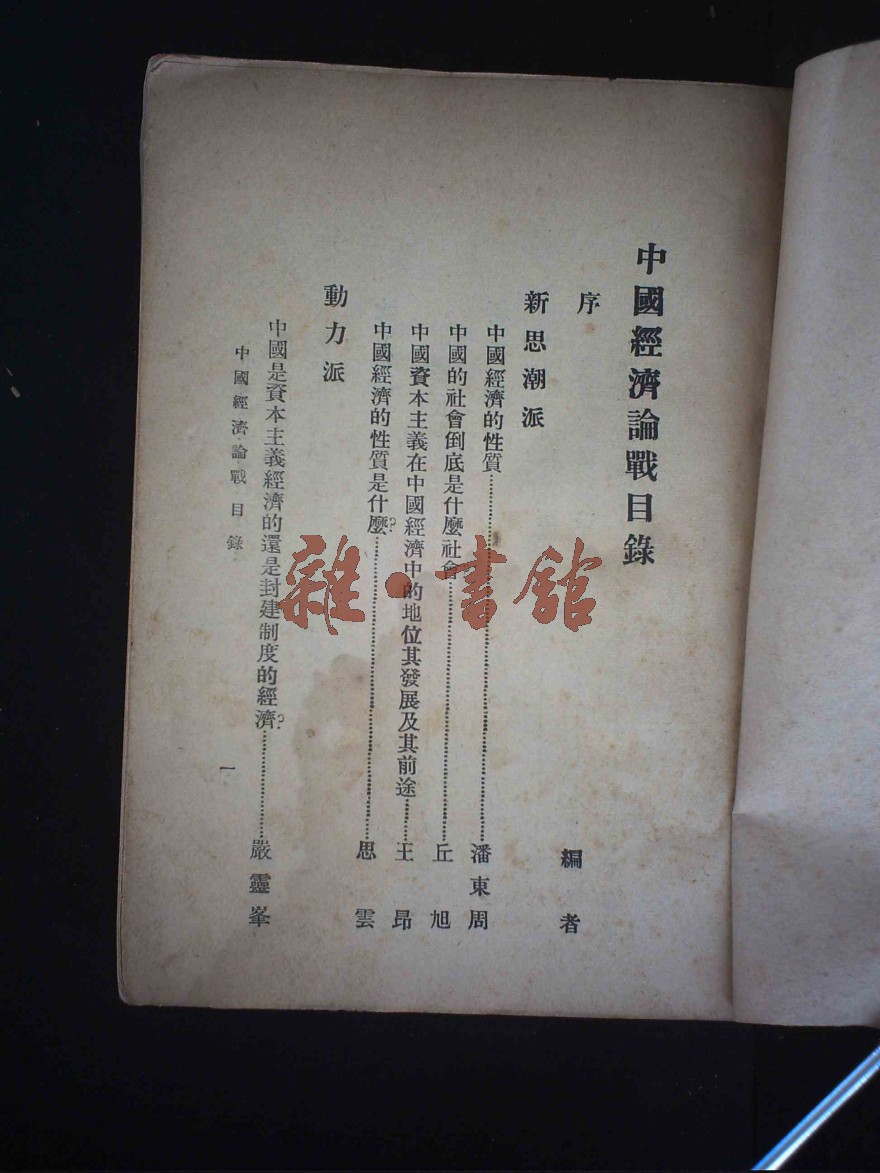 中國經濟論戰目錄
序 編者
新思潮派
中國經濟的性質……潘東周
中國的社會倒底是什麼社會……丘旭
中國資本主義在中國經濟中的地位其發展及其前途……王昂
中國經濟的性質是什麼?……思雲
動力派
中國是資本主義經濟的還是封建制度的經濟?……嚴靈峯
中國經濟論戰 目錄 一
雜·書館